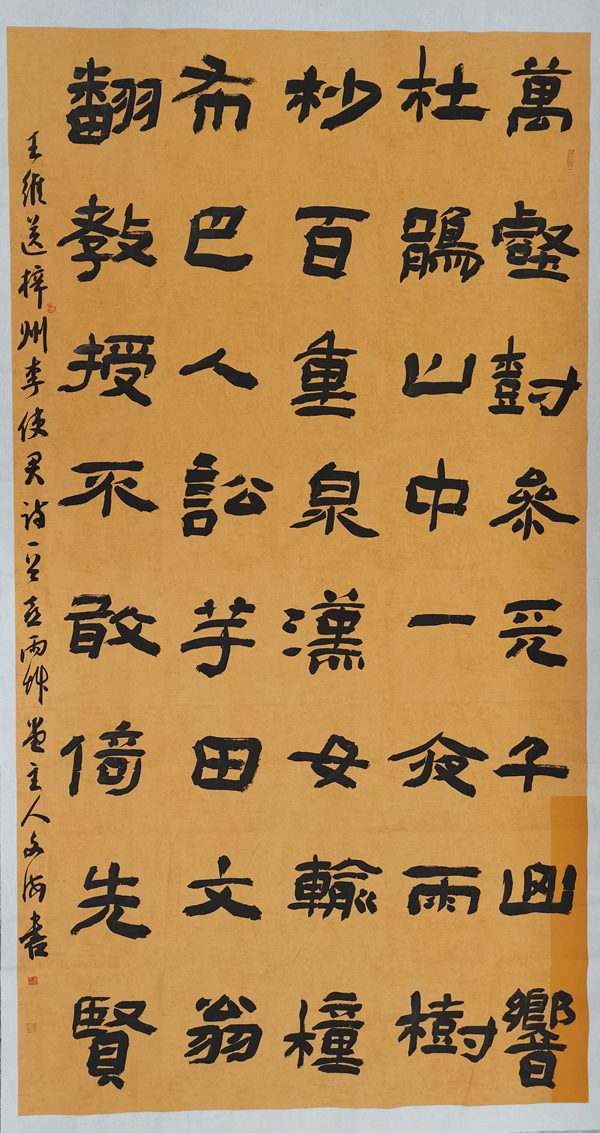 萬壑樹參天千山響
杜鵑山中一夜雨樹
杪百重泉漢女輸橦
布巴人訟芋田文翁
翻教授不敢倚先賢
王維送梓州李使君詩一首喜雨艸堂主人文海書